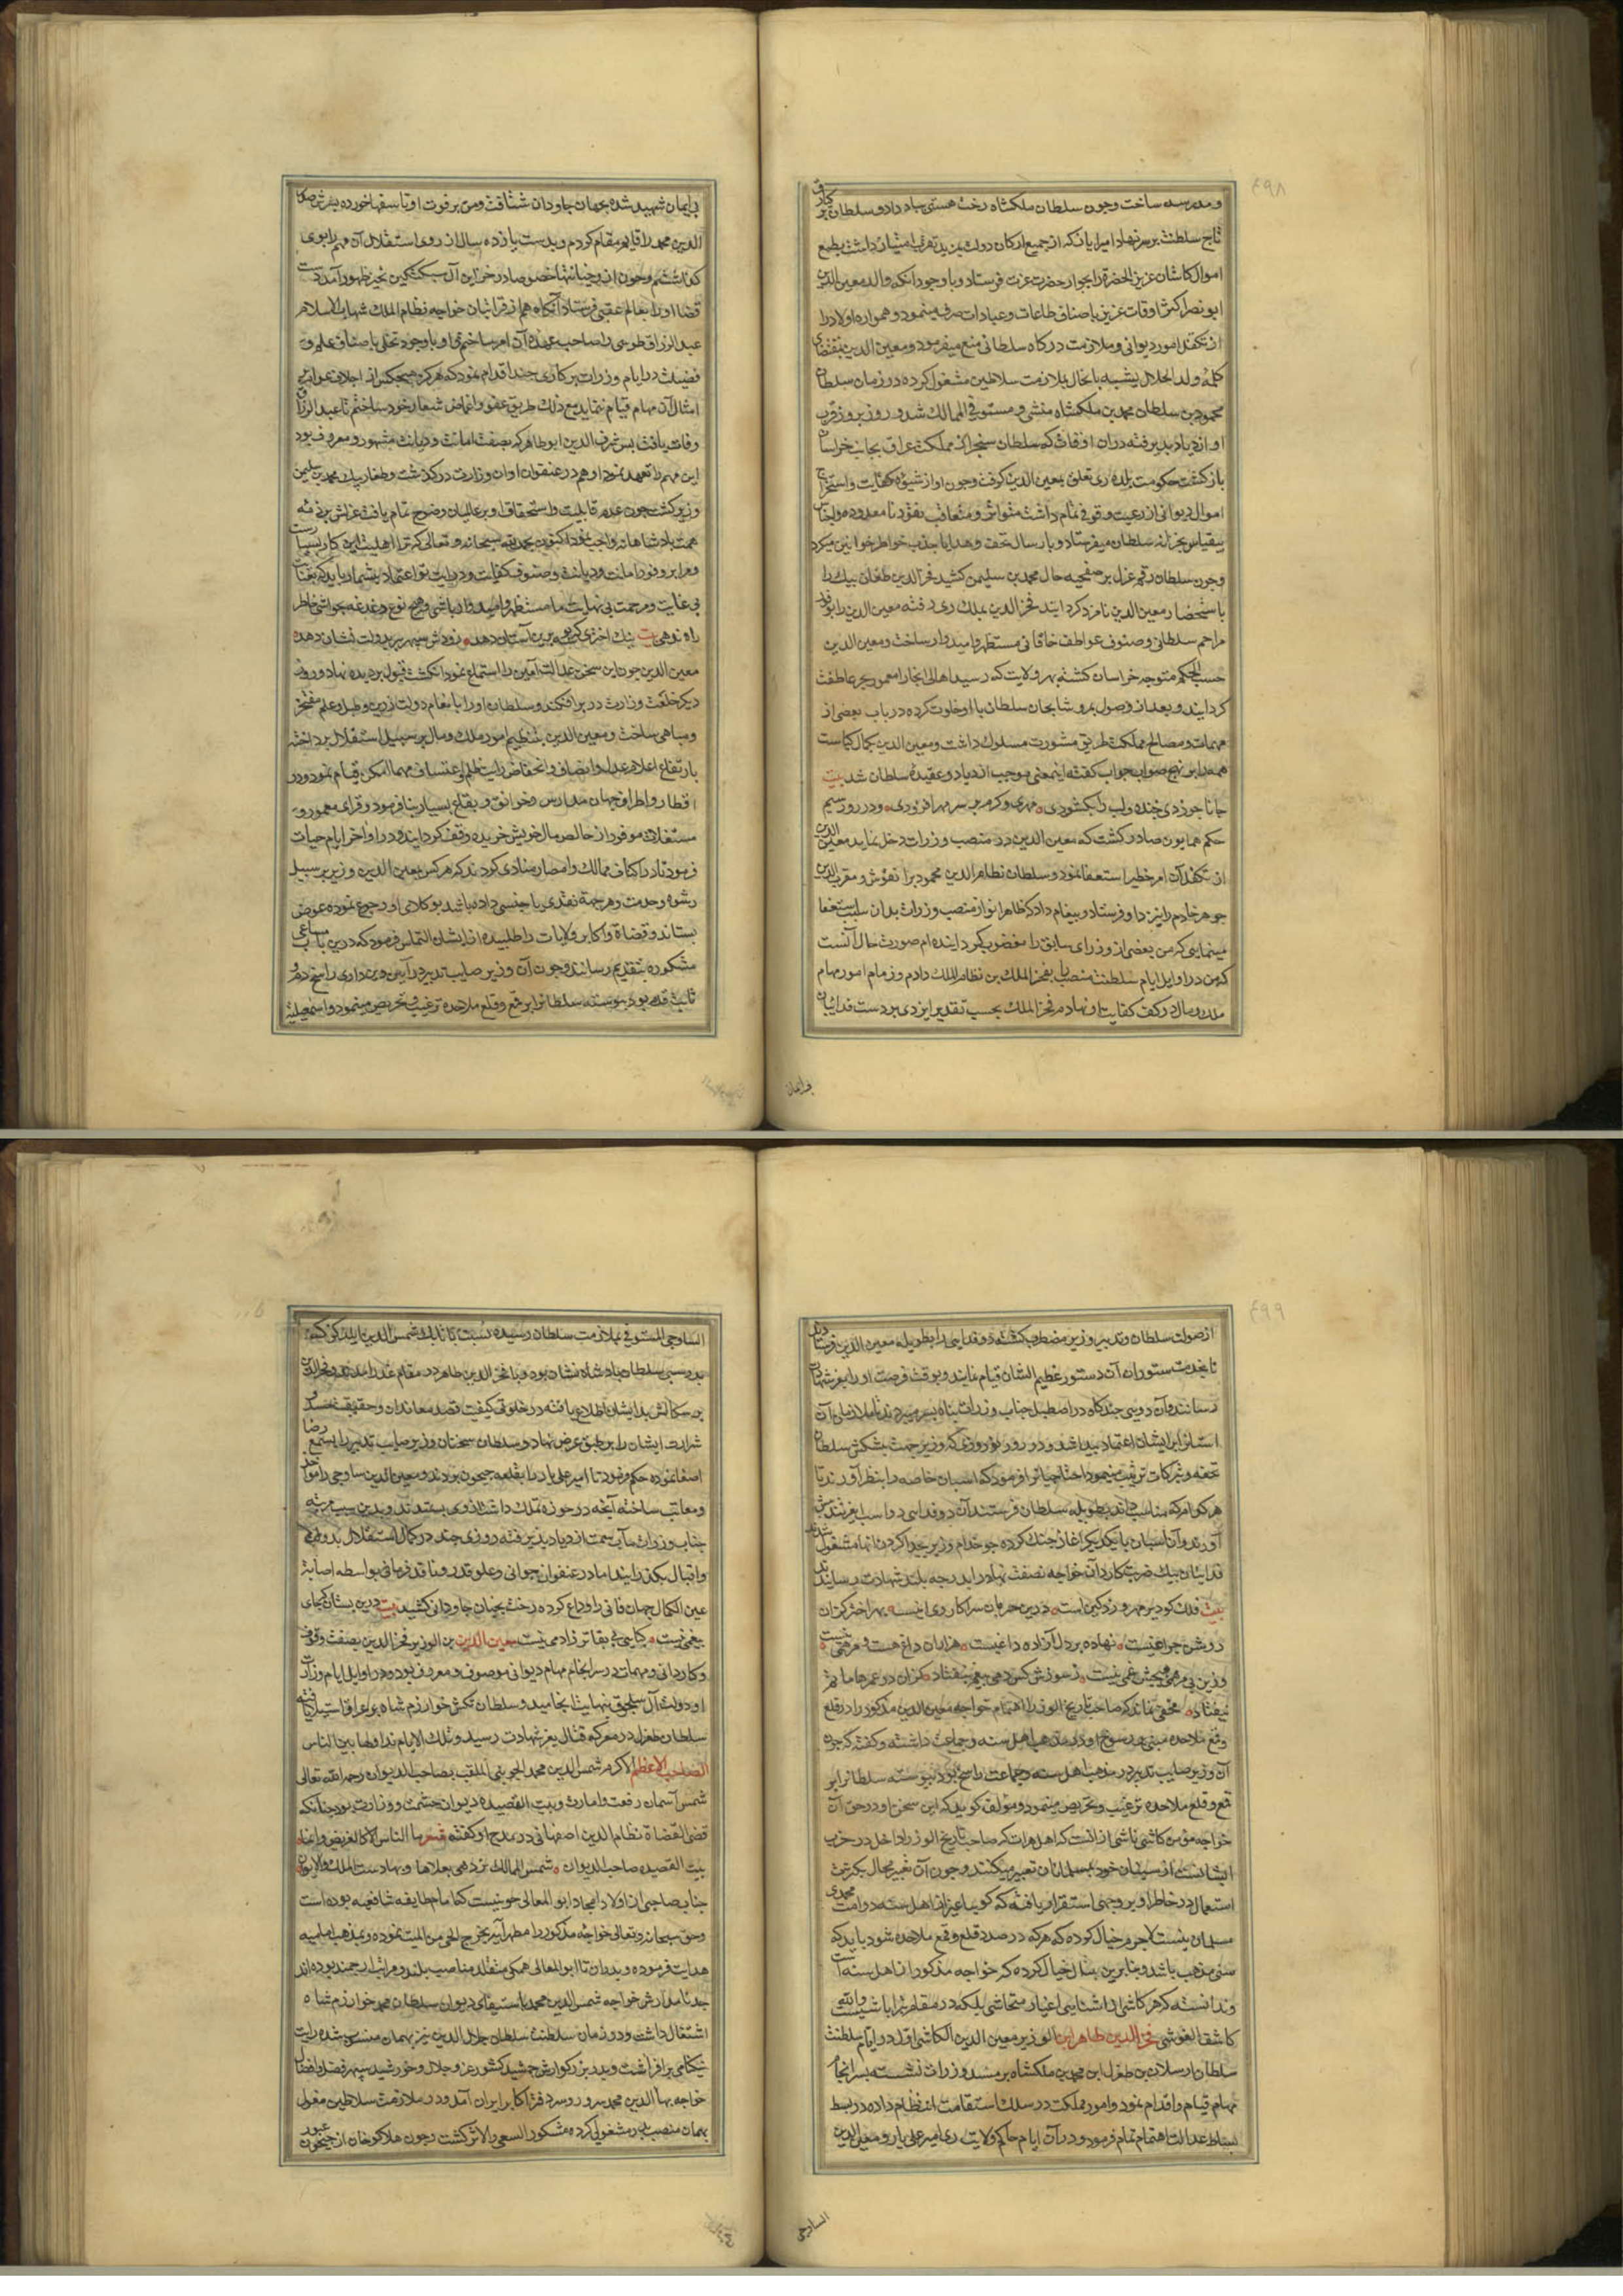 و مدرسه ساخت و چون سلطان ملکشاه رخت هستی بباد داد و سلطان برکیارق
تاج سلطنت بر سر نهاد امیرا باز که از جمیع ارکان دولت بمزید تقرب امتیاز داشت بطمع
اموال کاشان عزیز الحضرة را بجوار حضرت عزت فرستاد و با وجود آنکه والد معین الدین
ابو نصر اکثر اوقات عزیز باصناف طاعات و عبادات صرف مینمود و همواره اولاد را
از تکفل امور دیوانی و ملازمت درگاه سلطانی منع میفرمود و معین الدین بمقتضای
کلمه ولد الحلال یشبه بالخال بملازمت سلاطین مشغول کرده در زمان سلطان
محمود بن سلطان محمد بن ملکشاه منشی و مستوفی الممالک شد و روز بروز قرب
او ازدیاد پذیرفته در ان اوقات که سلطان سنجر از مملکت عراق بجانب خراسان
بازگشت حکومت بلده ری تعلق بمعین الدین گرفت و چون او از شیوه کفایت و استخراج
اموال دیوانی از رعیت وقوفی تمام داشت متواتر و متعاقب نقود نامعدود و اجناس
بیقیاس بخزانه سلطان میفرستاد و بارسال تحف و هدایا جذب خواطر خواتین میکرد
و چون سلطان رقم عزل بر صفحه حال محمد بن سلیمن کشید فخر الدین طغان بیک را
باستحضار معین الدین نامزد کردانید فخر الدین بملک ری رفته معین الدین را بوفور
مراحم سلطانی و صنوف عواطف خاقانی مستظهر و امیدوار ساخت و معین الدین
حسب الحکم متوجه خراسان کشته بهر ولایت که رسید اهالی انجا را مغمور بحر عاطفت
کردانید و بعد از وصول بمرو شاهجان سلطان با او خلوت کرده در باب بعضی از
مهمات و مصالح مملکت طریق مشورت مسلوک داشت و معین الدین بکمال کیاست
همه را بر نهج صواب جواب کفته اینمعنی موجب ازدیاد و عقیده سلطان شد بیت
جانا چو زدی خنده و لب را بکشودی مهری و کرم بر سر مهر افزودی و در روز سیم
حکم همایون صادر کشت که معین الدین در منصب وزرات دخل نماید معین الدین
از تکفل آن امر خطیر استعفا نمود و سلطان نظام الدین محمود برا نقوش و مقرب الدین
جوهر خادم را نزد او فرستاد و پیغام داد که ظاهرا تو از منصب وزرات بدان سبب استعفا
مینمایی که من بعضی از وزرای سابق را مغضوب کردانیده ام صورت حال آنست
که من در اوایل ایام سلطنت منصب را بفخر الملک بن نظام الملک دادم و زمام امور مهام
ملک و مال در کف کفایت او نهادم فخر الملک بحسب تقدیر ایزدی بر دست فدائیان
بی ایمان شهید شده بجهان جاودان شتافت و من بر فوت او تاسفها خورده پسرش صدر
الدین محمد را قایم مقام کردم و بدست یازده سال از روی استقلال آن مهم را بوی
کذاشتم و چون از وی خیانتها خصوصا در خزاین آل سبکتکین بحیز ظهور آمد دست
قضا او را بعالم عقبی فرستاد آنکاه هم از قرائبان خواجه نظام الملک شهاب الاسلام
عبد الرزاق طوسی را صاحب عهده آن امر ساختم و او با وجود تحلی باصناف علم و
فضیلت در ایام وزرات بر کاری چند اقدام نمود که هرکز هیچکس از اجلاف عوام بر
امثال آن مهام قیام ننماید مع ذلک طریق عفو و اغماض شعار خود ساختم تا عبد الرزاق
وفات یافت پس شرف الدین ابو طاهر که بصفت امانت و دیانت مشهور و معروف بود
این مهم را تعهد نمود او هم در عنفوان اوان وزارت درکذشت و طغار بیک محمد بن سلیمن
وزیر کشت چون عدم قابلیت و استحقاق او بر عالمیان وضوح تمام یافت عزلش بر ذمه
همت پادشاهانه واجب نمود اکنون بحمد الله سبحانه و تعالی که ترا اهلیت این کار بسیار است
و مرا بر وفور امانت و دیانت و صنوف کفایت و درایت تو اعتماد بیشمار باید که بعنایت
بی غایت و مرحمت بی نهایت ما مستظهر و امیدوار باشی و هیچ نوع دغدغه بحواشی خاطر
راه ندهی بیت نیک اختری که بوسه برین آستان دهد زودش سپهر بر بدولت نشان دهد
معین الدین چون این سخن عدالت آمین را استماع نمود انکشت قبول بر دیده نهاد و روز
دیکر خلعت وزارت در بر افکند و سلطان او را بانعام دوات زرین و طبل و علم مفتخر
و مباهی ساخت و معین الدین بتنظیم امور ملک و مال بر سبیل استقلال پرداخته
بارتفاع اعلام عدل و انصاف و انخفاض رایت ظلم و اعتساف مهما امکن قیام نمود و در
اقطار و اطراف جهان مدارس و خوانق و بقاع بسیار بنا فرمود و قرای معمور و
مستغلات موفور از خالص مال خویش خریده وقف کردانید و در اواخر ایام حیات
فرمود تا در اکناف ممالک و امصار منادی کردند که هر کس بمعین الدین وزیر بر سبیل
رشوه و خدمت و هر جهة نقدی یا جنسی داده باشد بوکلای او رجوع نموده عوض
بستاند و قضاة و اکابر ولایات را طلبیده از ایشان التماس فرمود که درین باب مساعی
مشکوره بتقدیم رسانند و چون آن وزیر صایب تدبیر در آیین و دین داری راسخ دم و
ثابت قدم بود پیوسته سلطانرا بر قمع و قلع ملاحده ترغیب و تحریص مینمود و اسمعیلیه
فرایمان
از صولت سلطان و تدبیر وزیر مضطرب کشته دو فدایی را بطویله معین الدین فرستادند
تا بخدمت ستوران آن دستور عظیم الشان قیام نمایند و بوقت فرصت او را بعز شهادت
رسانند و آن دو سی چند کاه در اصطبل جناب وزرات پناه بسر میبردند تا ملازمان آن
استانرا بر ایشان اعتماد پیدا شد و در روز نوروزی که وزیر جهت پیشکش سلطان
تحفه و تبرکات ترتیب مینمود اختاجیانرا فرمود که اسبان خاصه را بنظر آورند تا
هر کدام که مناسب داند بطویله سلطان فرستند آن دو فدایی دو اسب بغرش
آوردند و آن اسبان با یکدیکر اغاز جنک کرده چو خدام وزیر بجدا کردن انها مشغول شدند
فدائیان بیک ضربت کارد آن خواجه نصفت نهاد را بدرجه بلند شهادت رسانیدند
بیت فلک کو دیر مهر و زود کین است درین حرمان سرا کار وی اینست بهر اختر کزان
روشن چراغیست نهاده بر دل آزاده داغیست هزاران داغ هست و مرهمی نیست
وزین بی مرهمی هیچش غمی نیست ز سوزش کس دمی بیغم نیفتاد کزان در عمرها ماتم
نیفتاد مخفی نماند که صاحب تاریخ الوزرا اهتمام خواجه معین الدین مذکور را در قلع
و قمع ملاحده مبنی بر رسوخ او در مذهب اهل سنه و جماعت داشته و کفته که چون
آن وزیر صایب تدبیر در مذهب اهل سنه و جماعت راسخ بود پیوسته سلطانرا بر
قمع و قلع ملاحده ترغیب و تحریص مینمود و مؤلف کوید که این سخن او در حق آن
خواجه مؤمن کاشی ناشی از انست که اهل هرات که صاحب تاریخ الوزرا داخل در حزب
ایشانست از سنیان خود بمسلمانان تعبیر میکنند و چون آن تعبیر محال بکرت
استعمال در خاطر او بر وجهی استقرار یافته که کویا غیر از اهل سنه در امت محمدی
مسلمان نیست لاجرم خیال کرده که هر که در صدد قلع و قمع ملاحده شود باید که
سنی مذهب باشد و بنابرین خیال کرده که خواجه مذکور از اهل سنه است
و ندانسته که هر کاشی از اشنایی اغیار متحاشی بلکه در مقام تبرا باشیست والله
کاشف الغواشی فخر الدین طاهر ابن الوزیر معین الدین الکاشی اول در ایام سلطنت
سلطان ارسلان بن طغرل ابن محمد بن ملکشاه بر مسند وزرات نشست بسرانجام
مهام قیام و اقدام نمود و امور مملکت در سلک استقامت انتظام داده در بسط
بساط عدالت اهتمام تمام فرمود و در آن ایام حاکم ولایت ری امیر علی بار و معین الدین
الساوجی
الساوجی المستوفی بملازمت سلطان رسیده نسبت باتابک شمس الدین ایلدکز که
بدرسبی سلطان پادشاه نشان بود و با فخر الدین طاهر در مقام غدر آمدند و فخر الدین
بر سکالش بداندیشان اطلاع یافته در خلوتی کیفیت قصد معاندان و حقیقت حسد و
شرارت ایشان را بر طبق عرض نهاد و سلطان سخنان وزیر صایب تدبیر را بسمع رضا
اصغا نموده حکم فرمود تا امیر علی بار را بقلعه جیحون بردند و معین الدین ساوجی را مواخذ
و معاتب ساخته آنچه در حوزه تملک داشت از وی بستدند و بدین سبب مرتبه
جناب وزرات مآب سمت ازدیاد پذیرفته و روزی چند در کمال استقلال بدولت
و اقبال بکذرانید اما در عنفوان جوانی و علو قدر و نفاذ فرمانی بواسطه اصابة
عین الکمال جهان فانی را وداع کرده رخت بجنان جاودانی کشید بیت درین بستان کجای
بیغمی نیست کیایی بی بقاتر زادمی نیست معین الدین بن الوزیر فخر الدین بصفت وقوف
و کاردانی و مهمات در سرانجام مهام دیوانی موصوف و معروف بود و در اوایل ایام وزارت
او دولت آل سلجوق بنهایت انجامید و سلطان تکش خوارزم شاه بر عراق استیلا یافته
سلطان طغرل در معرکه قتال بعز شهادت رسید و تلک الایام نداولها بین الناس
الصاحب الاعظم الاکرم شمس الدین محمد الجوینی الملقب بصاحب الدیوان رحمه الله تعالی
شمس آسمان رفعت و امارت و بیت القصیده دیوان حشمت و وزارت بود چنانکه
قضی القضاة نظام الدین اصفهانی در مدح او کفته شعر ما الناس الا کالقریض و انما
بیت القصیده صاحب الدیوان شمس الممالک تزدهی بعلاها و بهاء دست الملک والایوان
جناب صاحبی از اولاد امجاد ابو المعالی جوینیست که امام طایفه شافعیه بوده است
و حق سبحانه و تعالی خواجه مذکور را مظهر آیه یخرج الحی من المیت نموده و بمذهب امامیه
هدایت فرموده و پدران تا ابو المعالی همکی متقلد مناصب بلند و مراتب ارجمند بوده اند
جد نامدارش خواجه شمس الدین محمد باستیفای دیوان سلطان محمد خوارزم شاه
اشتغال داشت و در زمان سلطنت سلطان جلال الدین نیز بهمان منسوب شده رایت
نیکنامی بر افراشت و پدر بزرکوارش جمشید کشور عز و جلال و خورشید سپهر فضل و افضال
خواجه بها الدین محمد سرور و سر دفتر اکابر ایران آمد و در ملازمت سلاطین مغول
بهمان منصب پدر مشغولی کرده مشکور السعی و الاثر کشت و چون هلاکو خان از جیحون عبور